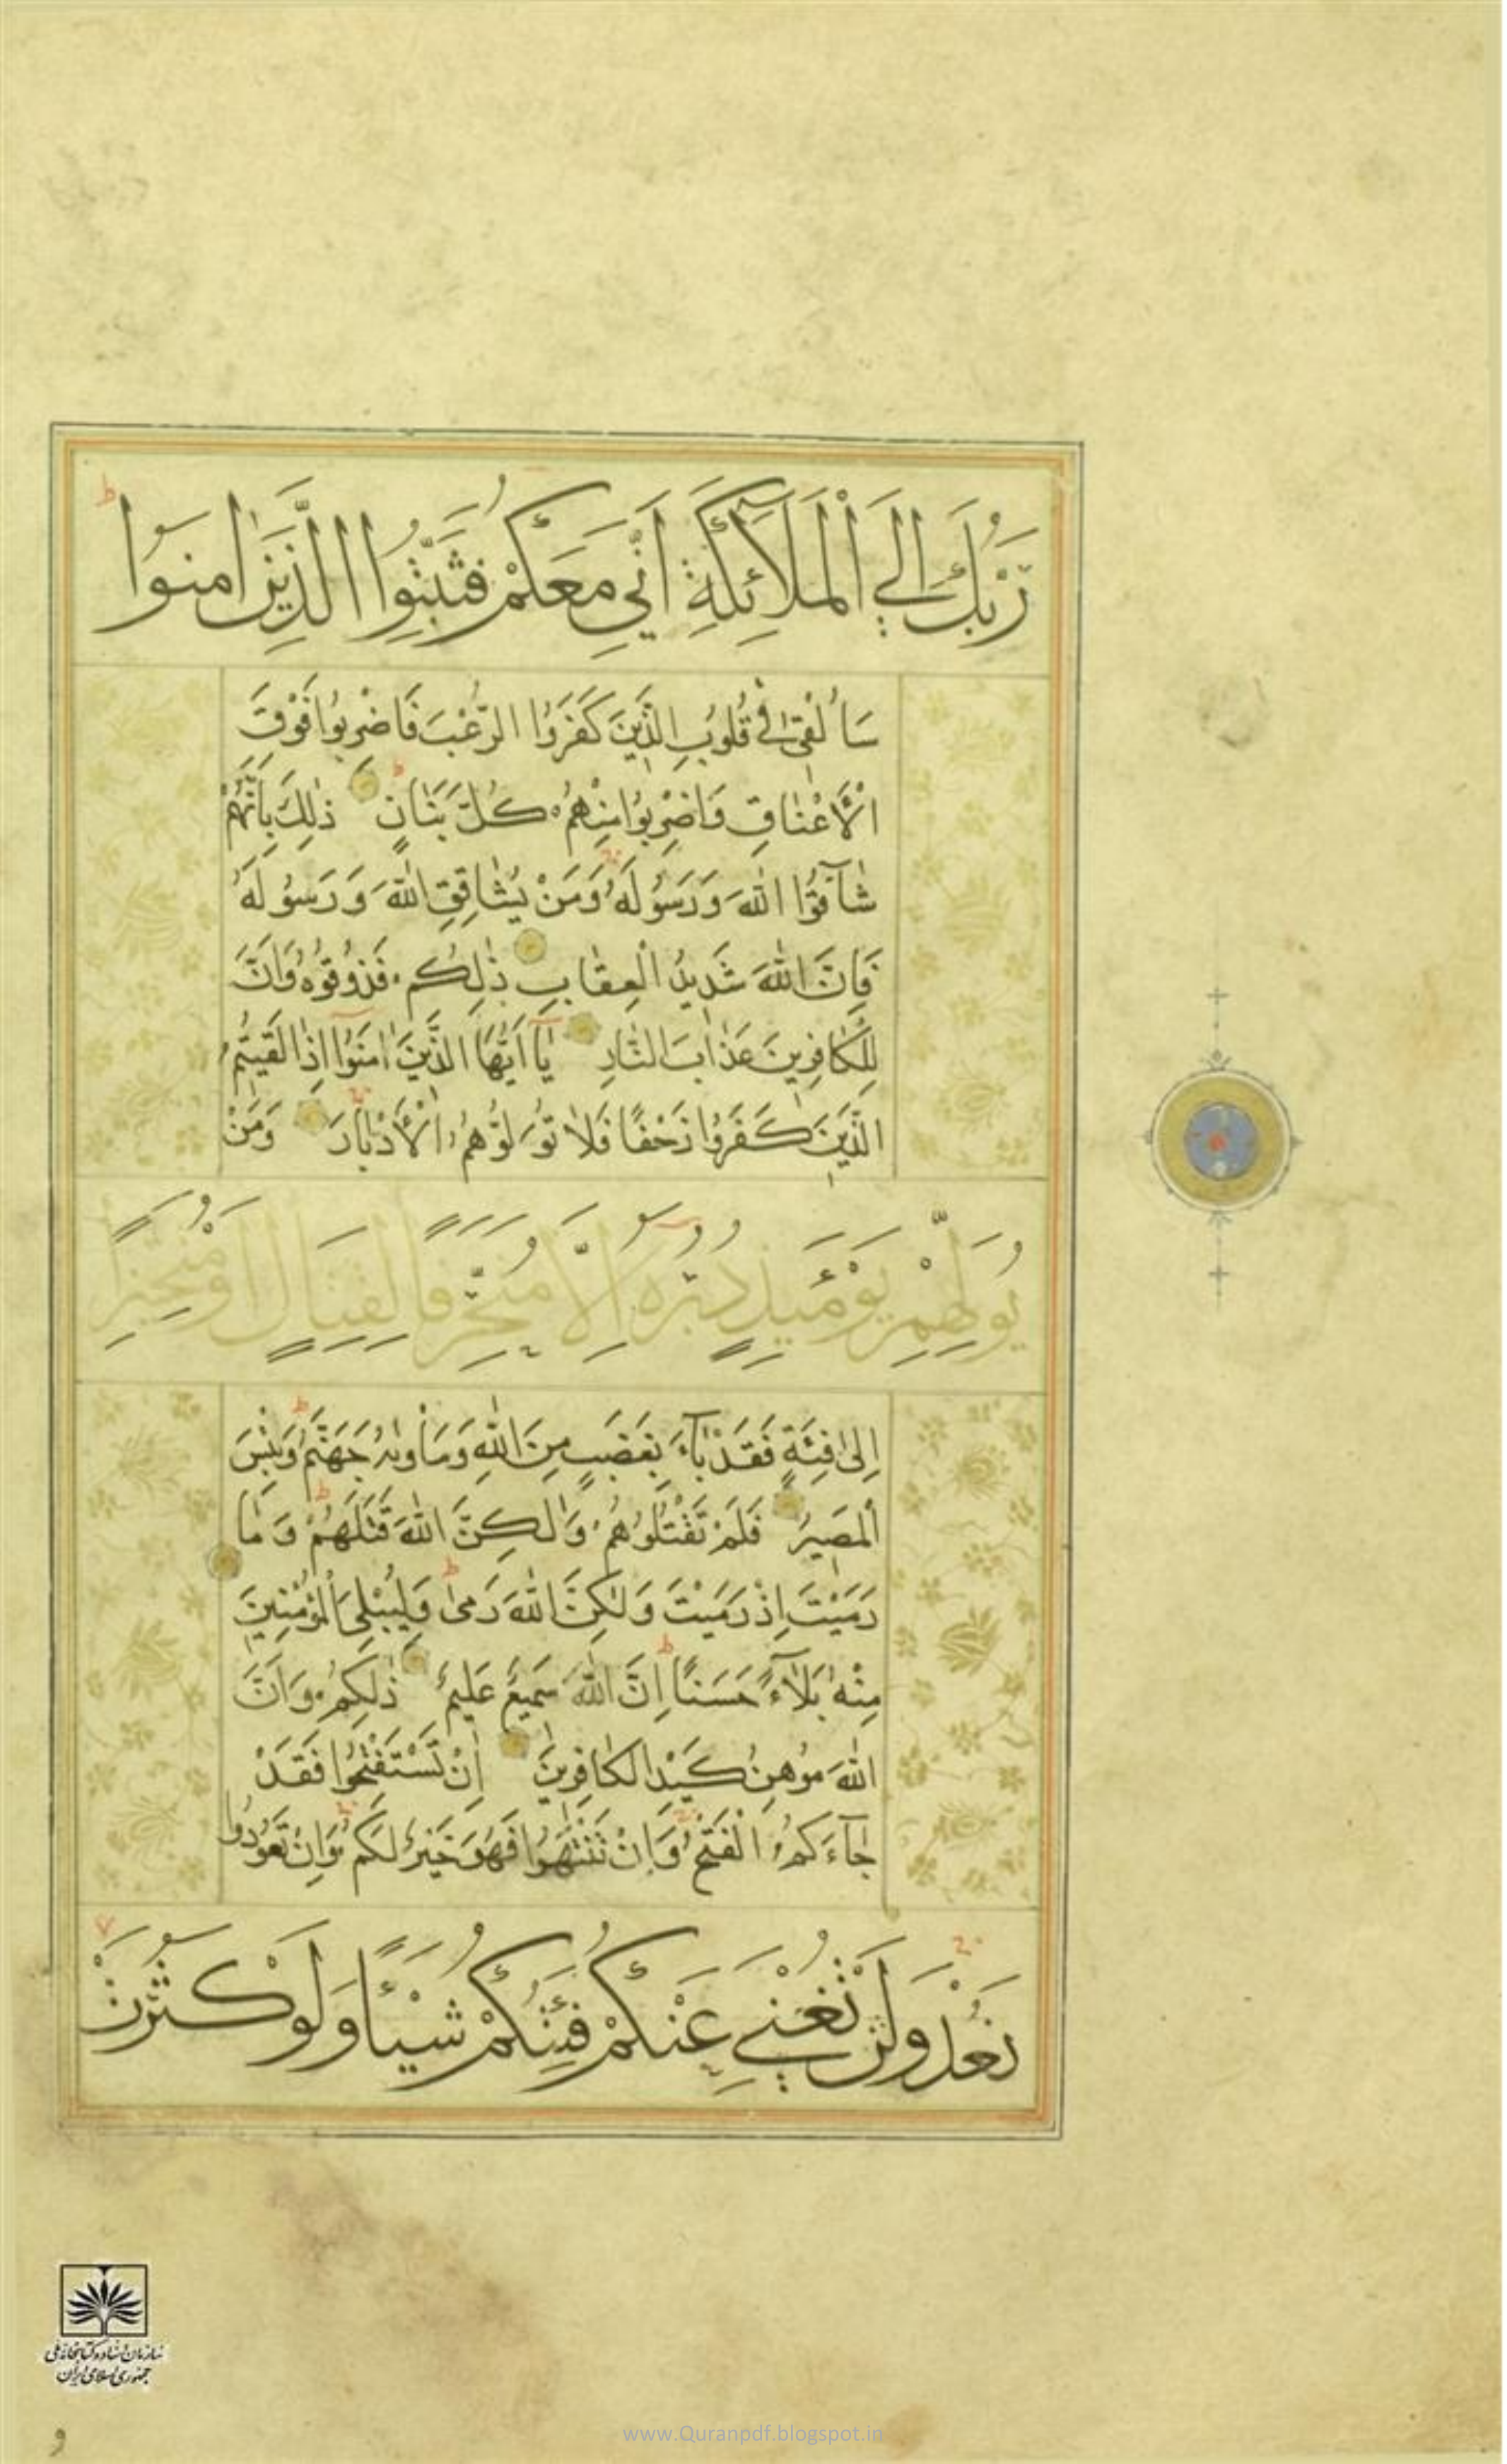 رَبُّكَ اِلَي الْمَلَآئِكَةِ اَنِّي مَعَكُمْ فَثَبِّتُوا الَّذِينَ اٰمَنُوا
سَاُلْقِى فِى قُلُوبِ الَّذِينَ كَفَرُوا الرُّعْبَ فَاضْرِبُوا فَوْقَ
الْاَعْنَاقِ وَاضْرِبُوا مِنْهُمْ كُلَّ بَنَانٍ ذٰلِكَ بِاَنَّهُمْ
شَآقُّوا اللّٰهَ وَرَسُولَهُ وَمَنْ يُشَاقِقِ اللّٰهَ وَرَسُولَهُ
فَاِنَّ اللّٰهَ شَدِيدُ الْعِقَابِ ذٰلِكُمْ فَذُوقُوهُ وَاَنَّ
لِلْكَافِرِينَ عَذَابَ النَّارِ يَا اَيُّهَا الَّذِينَ اٰمَنُوا اِذَا لَقِيتُمُ
الَّذِينَ كَفَرُوا زَحْفًا فَلَا تُوَلُّوهُمُ الْاَدْبَارَ وَمَنْ
يُوَلِّهِمْ يَوْمَئِذٍ دُبُرَهُ اِلَّا مُتَحَرِّفًا لِقِتَالٍ اَوْ مُتَحَيِّزًا
اِلٰى فِئَةٍ فَقَدْ بَآءَ بِغَضَبٍ مِنَ اللّٰهِ وَمَاْوٰيهُ جَهَنَّمُ وَبِئْسَ
الْمَصِيرُ فَلَمْ تَقْتُلُوهُمْ وَلٰكِنَّ اللّٰهَ قَتَلَهُمْ وَمَا
رَمَيْتَ اِذْ رَمَيْتَ وَلٰكِنَّ اللّٰهَ رَمٰى وَلِيُبْلِىَ الْمُؤْمِنِينَ
مِنْهُ بَلَآءً حَسَنًا اِنَّ اللّٰهَ سَمِيعٌ عَلِيمٌ ذٰلِكُمْ وَاَنَّ
اللّٰهَ مُوهِنُ كَيْدِ الْكَافِرِينَ اِنْ تَسْتَفْتِحُوا فَقَدْ
جَآءَكُمُ الْفَتْحُ وَاِنْ تَنْتَهُوا فَهُوَ خَيْرٌ لَكُمْ وَاِنْ تَعُودُوا
نَعُدْ وَلَنْ تُغْنِيَ عَنْكُمْ فِئَتُكُمْ شَيْئًا وَلَوْ كَثُرَتْ
سازمان اسناد و کتابخانه ملی
جمهوری اسلامی ایران
www.Quranpdf.blogspot.in